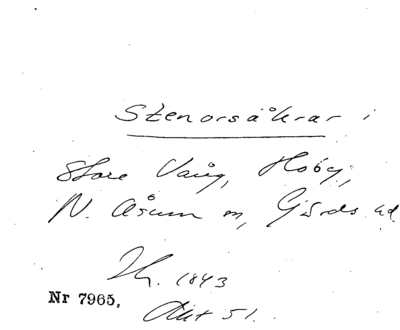 Stenorsåkrar i
Store Vång, Hoby,
N. Åsum sn, Gärds hd
Hz. 1843
Nr 7965.
Akt 51.